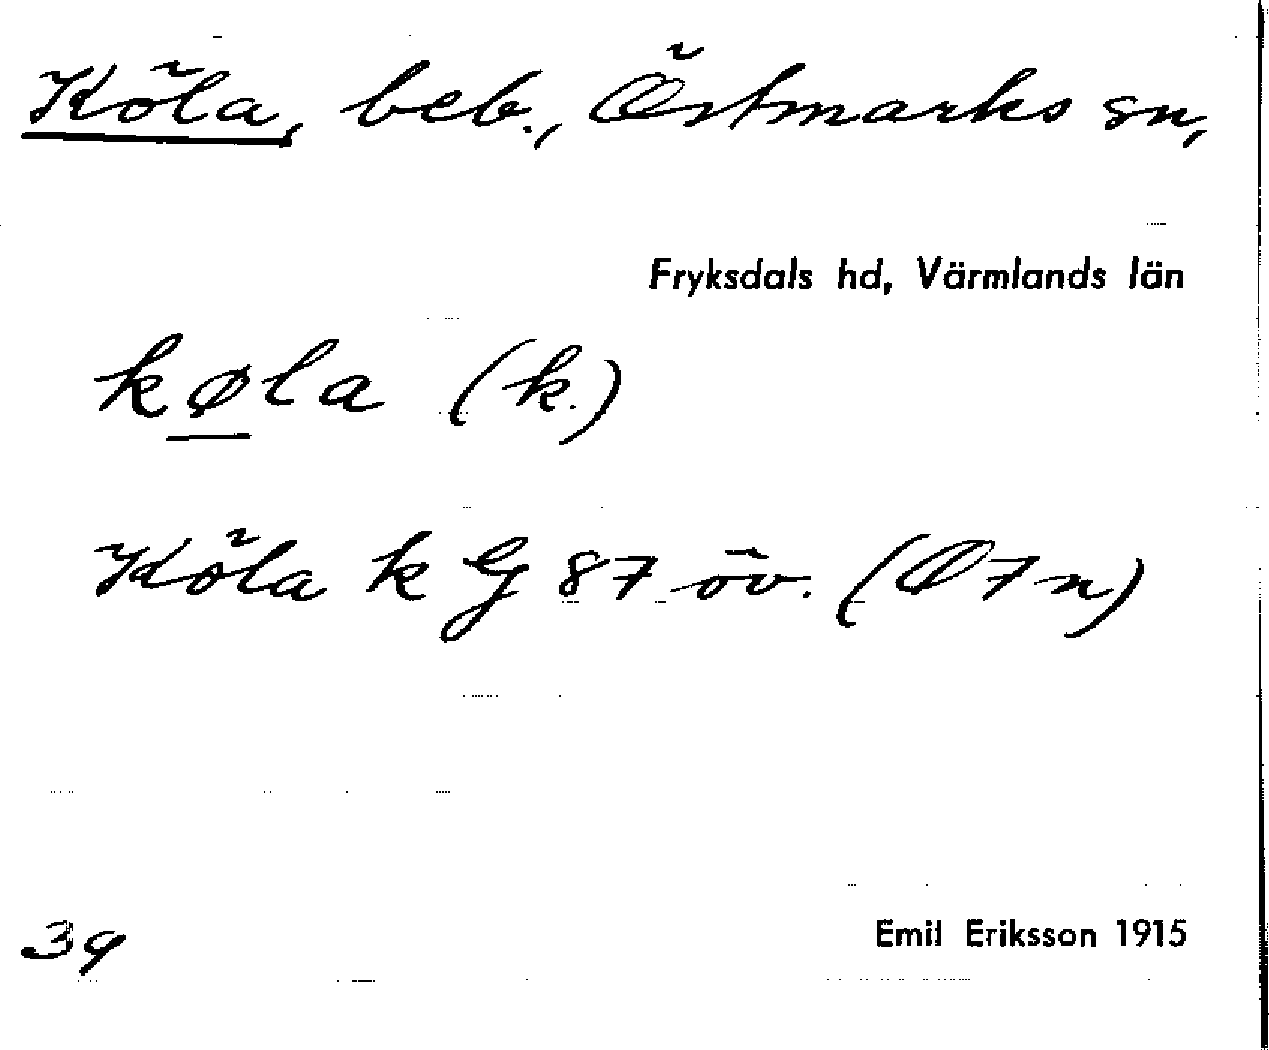 Köla, beb., Östmarks sn,
Fryksdals hd, Värmlands län
køla (k.)
Köla k G 87 öv. (Ø 7 n)
39
Emil Eriksson 1915